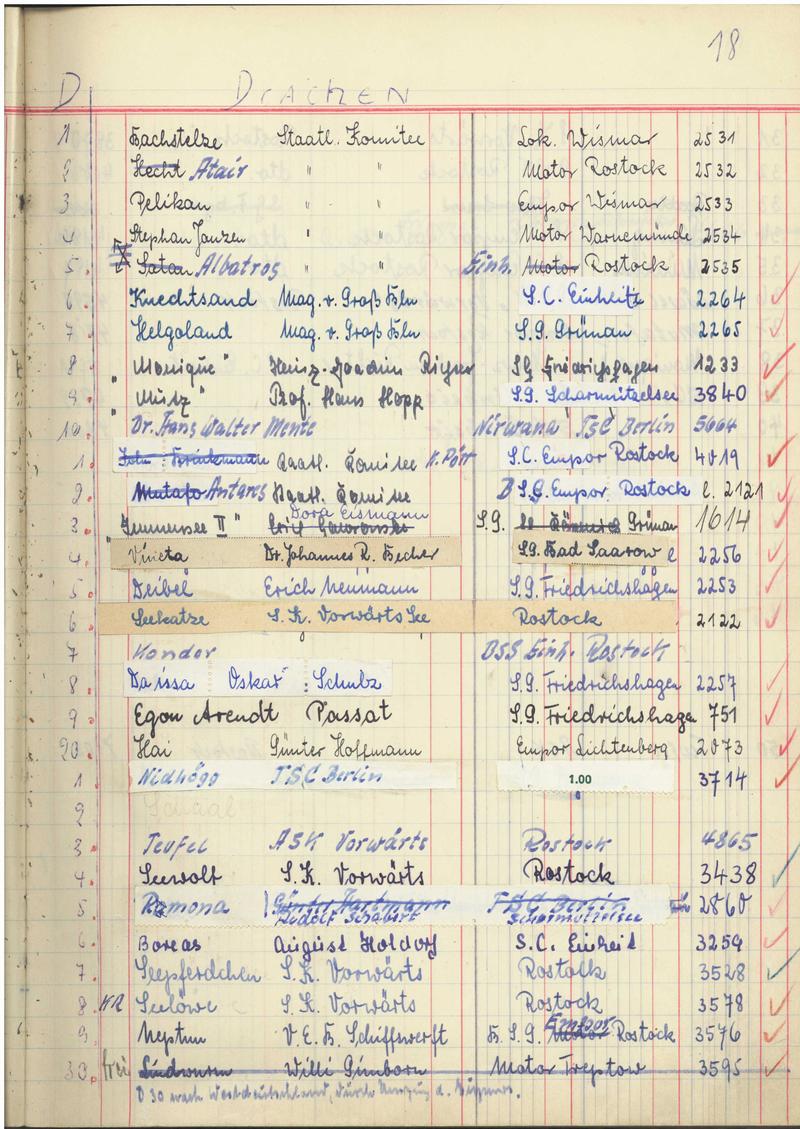 18
D. Drachen
1 Bachstelze Staatl. Komitee Lok. Wismar 2531
2 Hecht Atair " " Motor Rostock 2532
3 Pelikan " " Empor Wismar 2533
4 Stephan Janzen " " Motor Warnemünde 2534
5. Satan Albatros " " Einh. Motor Rostock 2535
6. Knechtsand Mag. v. Groß Bln S.C. Einheit 2264
7. Helgoland Mag. v. Groß Bln S.G. Grünau 2265
8 "Monique" Heinz-Joachim SG Friedrichshagen 1233
9. "Mütz" Prof. Hans Hopp S.G. Scharmützelsee 3840
10. Dr. Hans Walter Mente Nirwana TSC Berlin 5664
1. John Brinkmann Staatl. Komitee S.C. Empor Rostock 4019
2. Antares Staatl. Komitee S.G. Empor Rostock 2121
Dora Eismann
3. "Immensee II" Erich S.G. Grünau 1614
4. Vineta Dr. Johannes R. Becher S.G. Bad Saarow 2256
5 Deibel Erich Neumann S.G. Friedrichshagen 2253
6 Seekatze S.K. Vorwärts See Rostock 2122
7 Kondor BSG Einh. Rostock
8. Daissa Oskar Schulz S.G. Friedrichshagen 2257
9 Egon Arendt Passat S.G. Friedrichshagen 751
20. Hai Günter Hoffmann Empor Lichtenberg 2073
1. Nidhögg TSC Berlin 1.00 3714
2
3. Teufel ASK Vorwärts Rostock 4865
4. Seewolf S.K. Vorwärts Rostock 3438
5 Ramona Günter Hartmann TSC Berlin 2860
Rudolf Schubert Scharmützelsee
6 Boreas August Holdorf S.C. Einheit 3259
7. Seepferdchen S.K. Vorwärts Rostock 3528
8. KR Seelöwe S.K. Vorwärts Rostock 3578
9. Neptun V.E.B. Schiffswerft B.S.G. Motor Empor Rostock 3576
30. frei Lindwurm Willi Gimborn Motor Treptow 3595
D 30 nach Westdeutschland, durch Umzug d. Eigners.